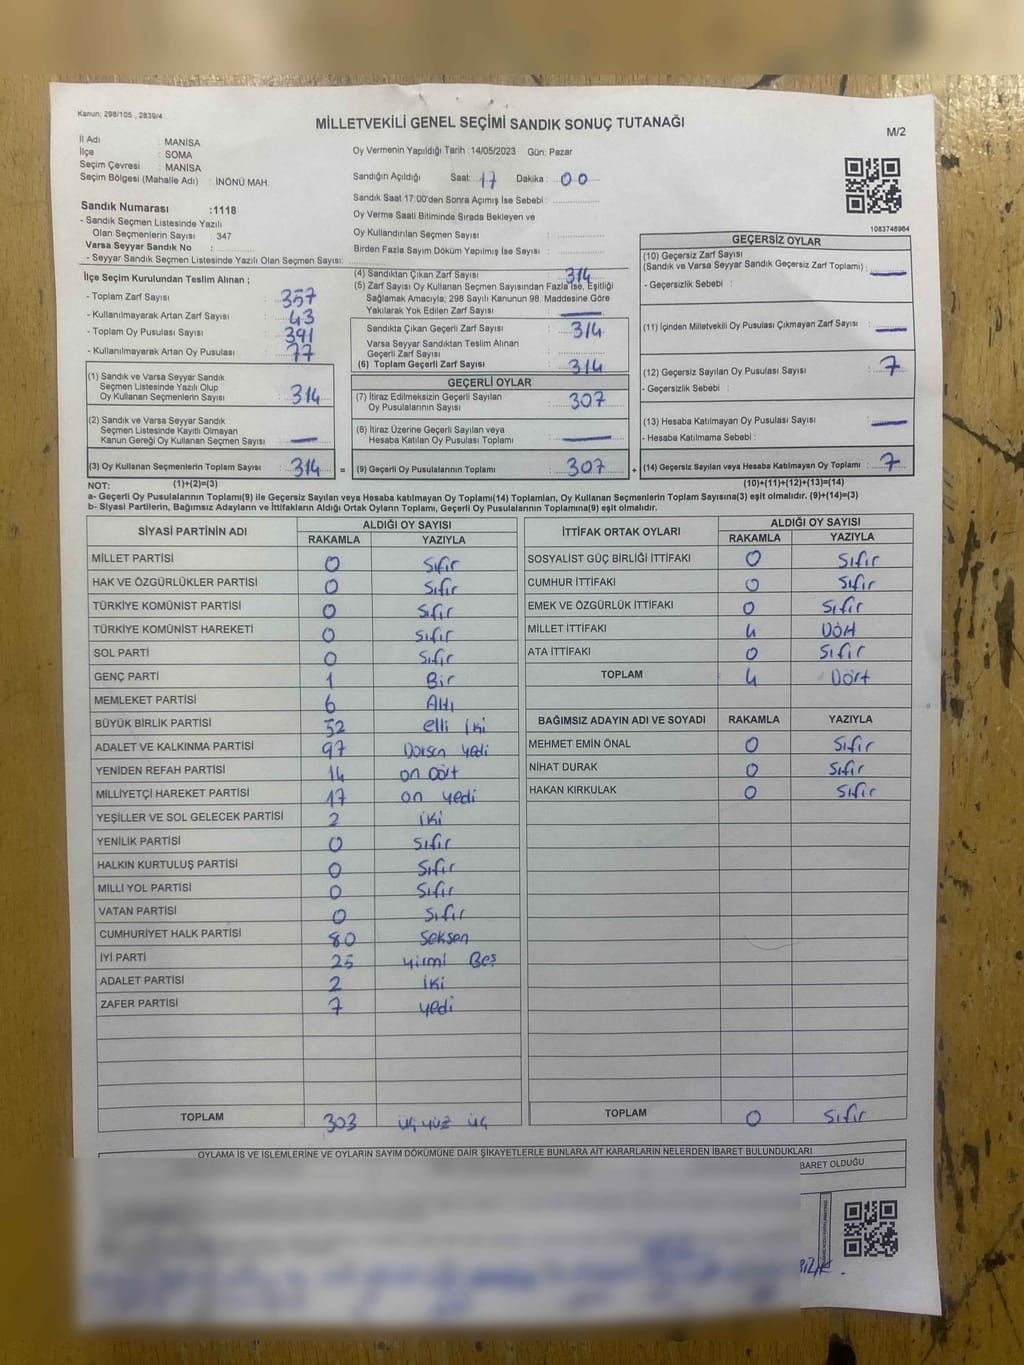 Kanun; 298/105 , 2839/4
MİLLETVEKİLİ GENEL SEÇİMİ SANDIK SONUÇ TUTANAĞI
M/2
İl Adı : MANİSA
İlçe : SOMA
Seçim Çevresi : MANİSA
Seçim Bölgesi (Mahalle Adı) : İNÖNÜ MAH.
Oy Vermenin Yapıldığı Tarih :14/05/2023 Gün: Pazar
Sandığın Açıldığı Saat: 17 Dakika : 00
Sandık Saat 17:00'den Sonra Açımış İse Sebebi :
Oy Verme Saati Bitiminde Sırada Bekleyen ve
Oy Kullandırılan Seçmen Sayısı :
Birden Fazla Sayım Döküm Yapılmış İse Sayısı :
Sandık Numarası :1118
- Sandık Seçmen Listesinde Yazılı
Olan Seçmenlerin Sayısı : 347
Varsa Seyyar Sandık No :
- Seyyar Sandık Seçmen Listesinde Yazılı Olan Seçmen Sayısı:
1083746964
İlçe Seçim Kurulundan Teslim Alınan ;
- Toplam Zarf Sayısı : 357
- Kullanılmayarak Artan Zarf Sayısı : 43
- Toplam Oy Pusulası Sayısı : 391
- Kullanılmayarak Artan Oy Pusulası : 77
(1) Sandık ve Varsa Seyyar Sandık
Seçmen Listesinde Yazılı Olup
Oy Kullanan Seçmenlerin Sayısı : 314
(2) Sandık ve Varsa Seyyar Sandık
Seçmen Listesinde Kayıtlı Olmayan
Kanun Gereği Oy Kullanan Seçmen Sayısı : —
(3) Oy Kullanan Seçmenlerin Toplam Sayısı : 314 =
(4) Sandıktan Çıkan Zarf Sayısı : 314
(5) Zarf Sayısı Oy Kullanan Seçmen Sayısından Fazla İse, Eşitliği
Sağlamak Amacıyla; 298 Sayılı Kanunun 98. Maddesine Göre
Yakılarak Yok Edilen Zarf Sayısı : —
Sandıkta Çıkan Geçerli Zarf Sayısı : 314
Varsa Seyyar Sandıktan Teslim Alınan
Geçerli Zarf Sayısı :
(6) Toplam Geçerli Zarf Sayısı : 314
GEÇERLİ OYLAR
(7) İtiraz Edilmeksizin Geçerli Sayılan
Oy Pusulalarının Sayısı : 307
(8) İtiraz Üzerine Geçerli Sayılan veya
Hesaba Katılan Oy Pusulası Toplamı : —
(9) Geçerli Oy Pusulalarının Toplamı : 307 +
GEÇERSİZ OYLAR
(10) Geçersiz Zarf Sayısı
(Sandık ve Varsa Seyyar Sandık Geçersiz Zarf Toplamı) : —
- Geçersizlik Sebebi :
(11) İçinden Milletvekili Oy Pusulası Çıkmayan Zarf Sayısı : —
(12) Geçersiz Sayılan Oy Pusulası Sayısı : 7
- Geçersizlik Sebebi :
(13) Hesaba Katılmayan Oy Pusulası Sayısı : —
- Hesaba Katılmama Sebebi :
(14) Geçersiz Sayılan veya Hesaba Katılmayan Oy Toplamı : 7
NOT: (1)+(2)=(3) (10)+(11)+(12)+(13)=(14)
a- Geçerli Oy Pusulalarının Toplamı(9) ile Geçersiz Sayılan veya Hesaba katılmayan Oy Toplamı(14) Toplamları, Oy Kullanan Seçmenlerin Toplam Sayısına(3) eşit olmalıdır. (9)+(14)=(3)
b- Siyasi Partilerin, Bağımsız Adayların ve İttifakların Aldığı Ortak Oyların Toplamı, Geçerli Oy Pusulalarının Toplamına(9) eşit olmalıdır.
SİYASİ PARTİNİN ADI ALDIĞI OY SAYISI
RAKAMLA YAZIYLA
MİLLET PARTİSİ 0 Sıfır
HAK VE ÖZGÜRLÜKLER PARTİSİ 0 Sıfır
TÜRKİYE KOMÜNİST PARTİSİ 0 Sıfır
TÜRKİYE KOMÜNİST HAREKETİ 0 Sıfır
SOL PARTİ 0 Sıfır
GENÇ PARTİ 1 Bir
MEMLEKET PARTİSİ 6 Altı
BÜYÜK BİRLİK PARTİSİ 52 elli iki
ADALET VE KALKINMA PARTİSİ 97 Doksan yedi
YENİDEN REFAH PARTİSİ 14 on dört
MİLLİYETÇİ HAREKET PARTİSİ 17 on yedi
YEŞİLLER VE SOL GELECEK PARTİSİ 2 iki
YENİLİK PARTİSİ 0 Sıfır
HALKIN KURTULUŞ PARTİSİ 0 Sıfır
MİLLİ YOL PARTİSİ 0 Sıfır
VATAN PARTİSİ 0 Sıfır
CUMHURİYET HALK PARTİSİ 80 Seksen
İYİ PARTİ 25 yirmi Beş
ADALET PARTİSİ 2 iki
ZAFER PARTİSİ 7 yedi
TOPLAM 303 üç yüz üç
İTTİFAK ORTAK OYLARI ALDIĞI OY SAYISI
RAKAMLA YAZIYLA
SOSYALİST GÜÇ BİRLİĞİ İTTİFAKI 0 Sıfır
CUMHUR İTTİFAKI 0 Sıfır
EMEK VE ÖZGÜRLÜK İTTİFAKI 0 Sıfır
MİLLET İTTİFAKI 4 Dört
ATA İTTİFAKI 0 Sıfır
TOPLAM 4 Dört
BAĞIMSIZ ADAYIN ADI VE SOYADI RAKAMLA YAZIYLA
MEHMET EMİN ÖNAL 0 Sıfır
NİHAT DURAK 0 Sıfır
HAKAN KIRKULAK 0 Sıfır
TOPLAM 0 Sıfır
OYLAMA İŞ VE İŞLEMLERİNE VE OYLARIN SAYIM DÖKÜMÜNE DAİR ŞİKAYETLERLE BUNLARA AİT KARARLARIN NELERDEN İBARET BULUNDUKLARI
BARET OLDUĞU